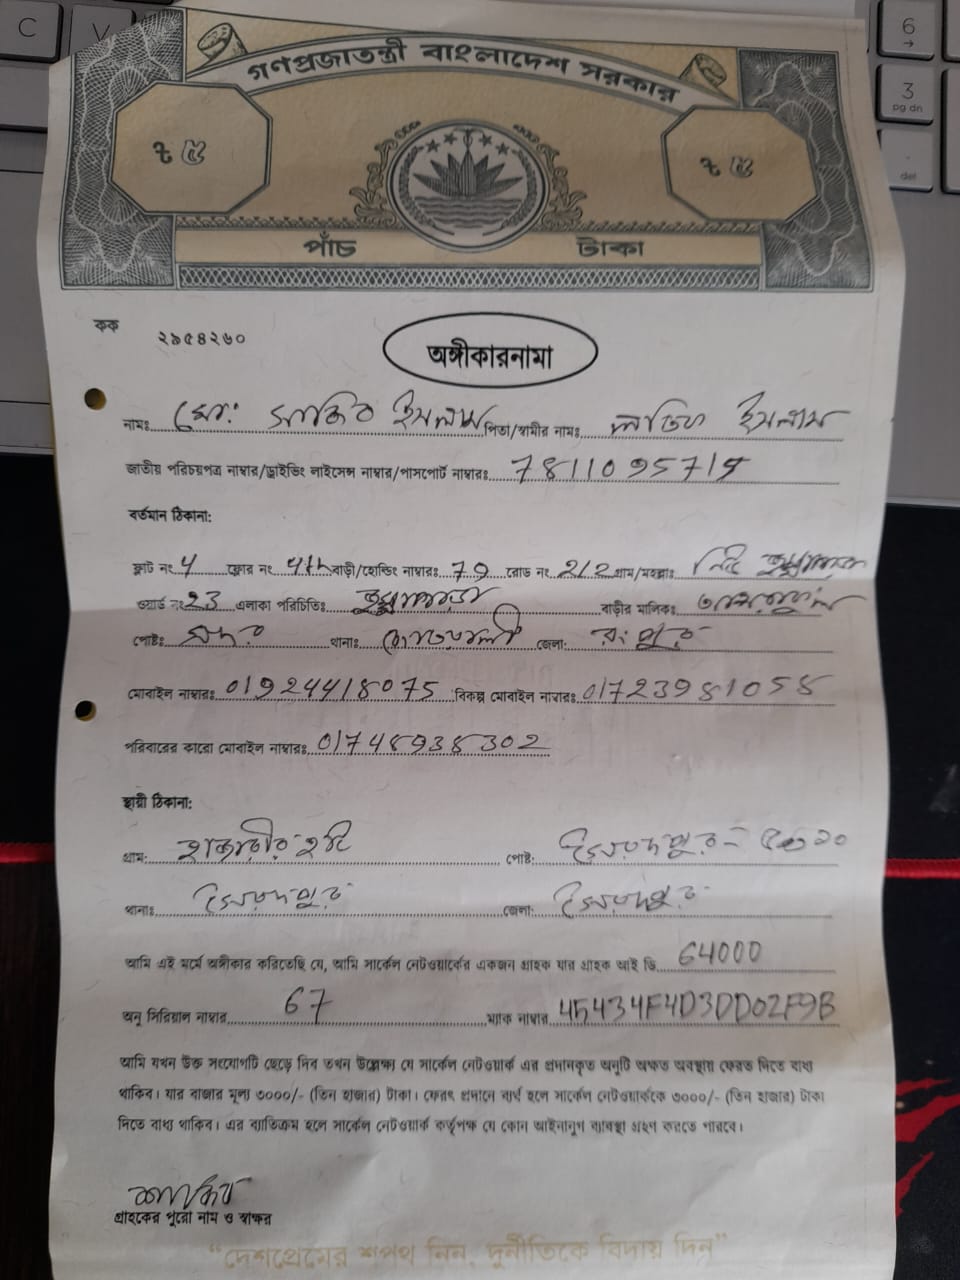 গণপ্রজাতন্ত্রী বাংলাদেশ সরকার
৳ ৫ ৳ ৫
পাঁচ টাকা
কক ২৯৫৪২৬০
অঙ্গীকারনামা
নামঃ মোঃ সাকিব ইসলাম পিতা/স্বামীর নামঃ লতিফ ইসলাম
জাতীয় পরিচয়পত্র নাম্বার/ড্রাইভিং লাইসেন্স নাম্বার/পাসপোর্ট নাম্বারঃ 7811095715
বর্তমান ঠিকানা:
ফ্লাট নং 4 ফ্লোর নং 4th বাড়ী/হোল্ডিং নাম্বারঃ 79 রোড নং 2/2 গ্রাম/মহল্লাঃ
ওয়ার্ড নং 23 এলাকা পরিচিতিঃ বাড়ীর মালিকঃ
পোষ্টঃ সদর থানাঃ কোতয়ালী জেলা: রংপুর
মোবাইল নাম্বারঃ 01924418075 বিকল্প মোবাইল নাম্বারঃ 01723981058
পরিবারের কারো মোবাইল নাম্বারঃ 01748938302
স্থায়ী ঠিকানা:
গ্রাম: হাজারীর হাট পোষ্ট: সৈয়দপুর -
থানাঃ সৈয়দপুর জেলা: সৈয়দপুর
আমি এই মর্মে অঙ্গীকার করিতেছি যে, আমি সার্কেল নেটওয়ার্কের একজন গ্রাহক যার গ্রাহক আই ডি 64000
অনু সিরিয়াল নাম্বার 67 ম্যাক নাম্বার 45434F4D3DD02F9B
আমি যখন উক্ত সংযোগটি ছেড়ে দিব তখন উল্লেক্ষ্য যে সার্কেল নেটওয়ার্ক এর প্রদানকৃত অনুটি অক্ষত অবস্থায় ফেরত দিতে বাধ্য
থাকিব। যার বাজার মূল্য ৩০০০/- (তিন হাজার) টাকা। ফেরৎ প্রদানে ব্যর্থ হলে সার্কেল নেটওয়ার্ককে ৩০০০/- (তিন হাজার) টাকা
দিতে বাধ্য থাকিব। এর ব্যতিক্রম হলে সার্কেল নেটওয়ার্ক কর্তৃপক্ষ যে কোন আইনানুগ ব্যবস্থা গ্রহণ করতে পারবে।
সাকিব
গ্রাহকের পুরো নাম ও স্বাক্ষর
"দেশপ্রেমের শপথ নিন, দুর্নীতিকে বিদায় দিন"